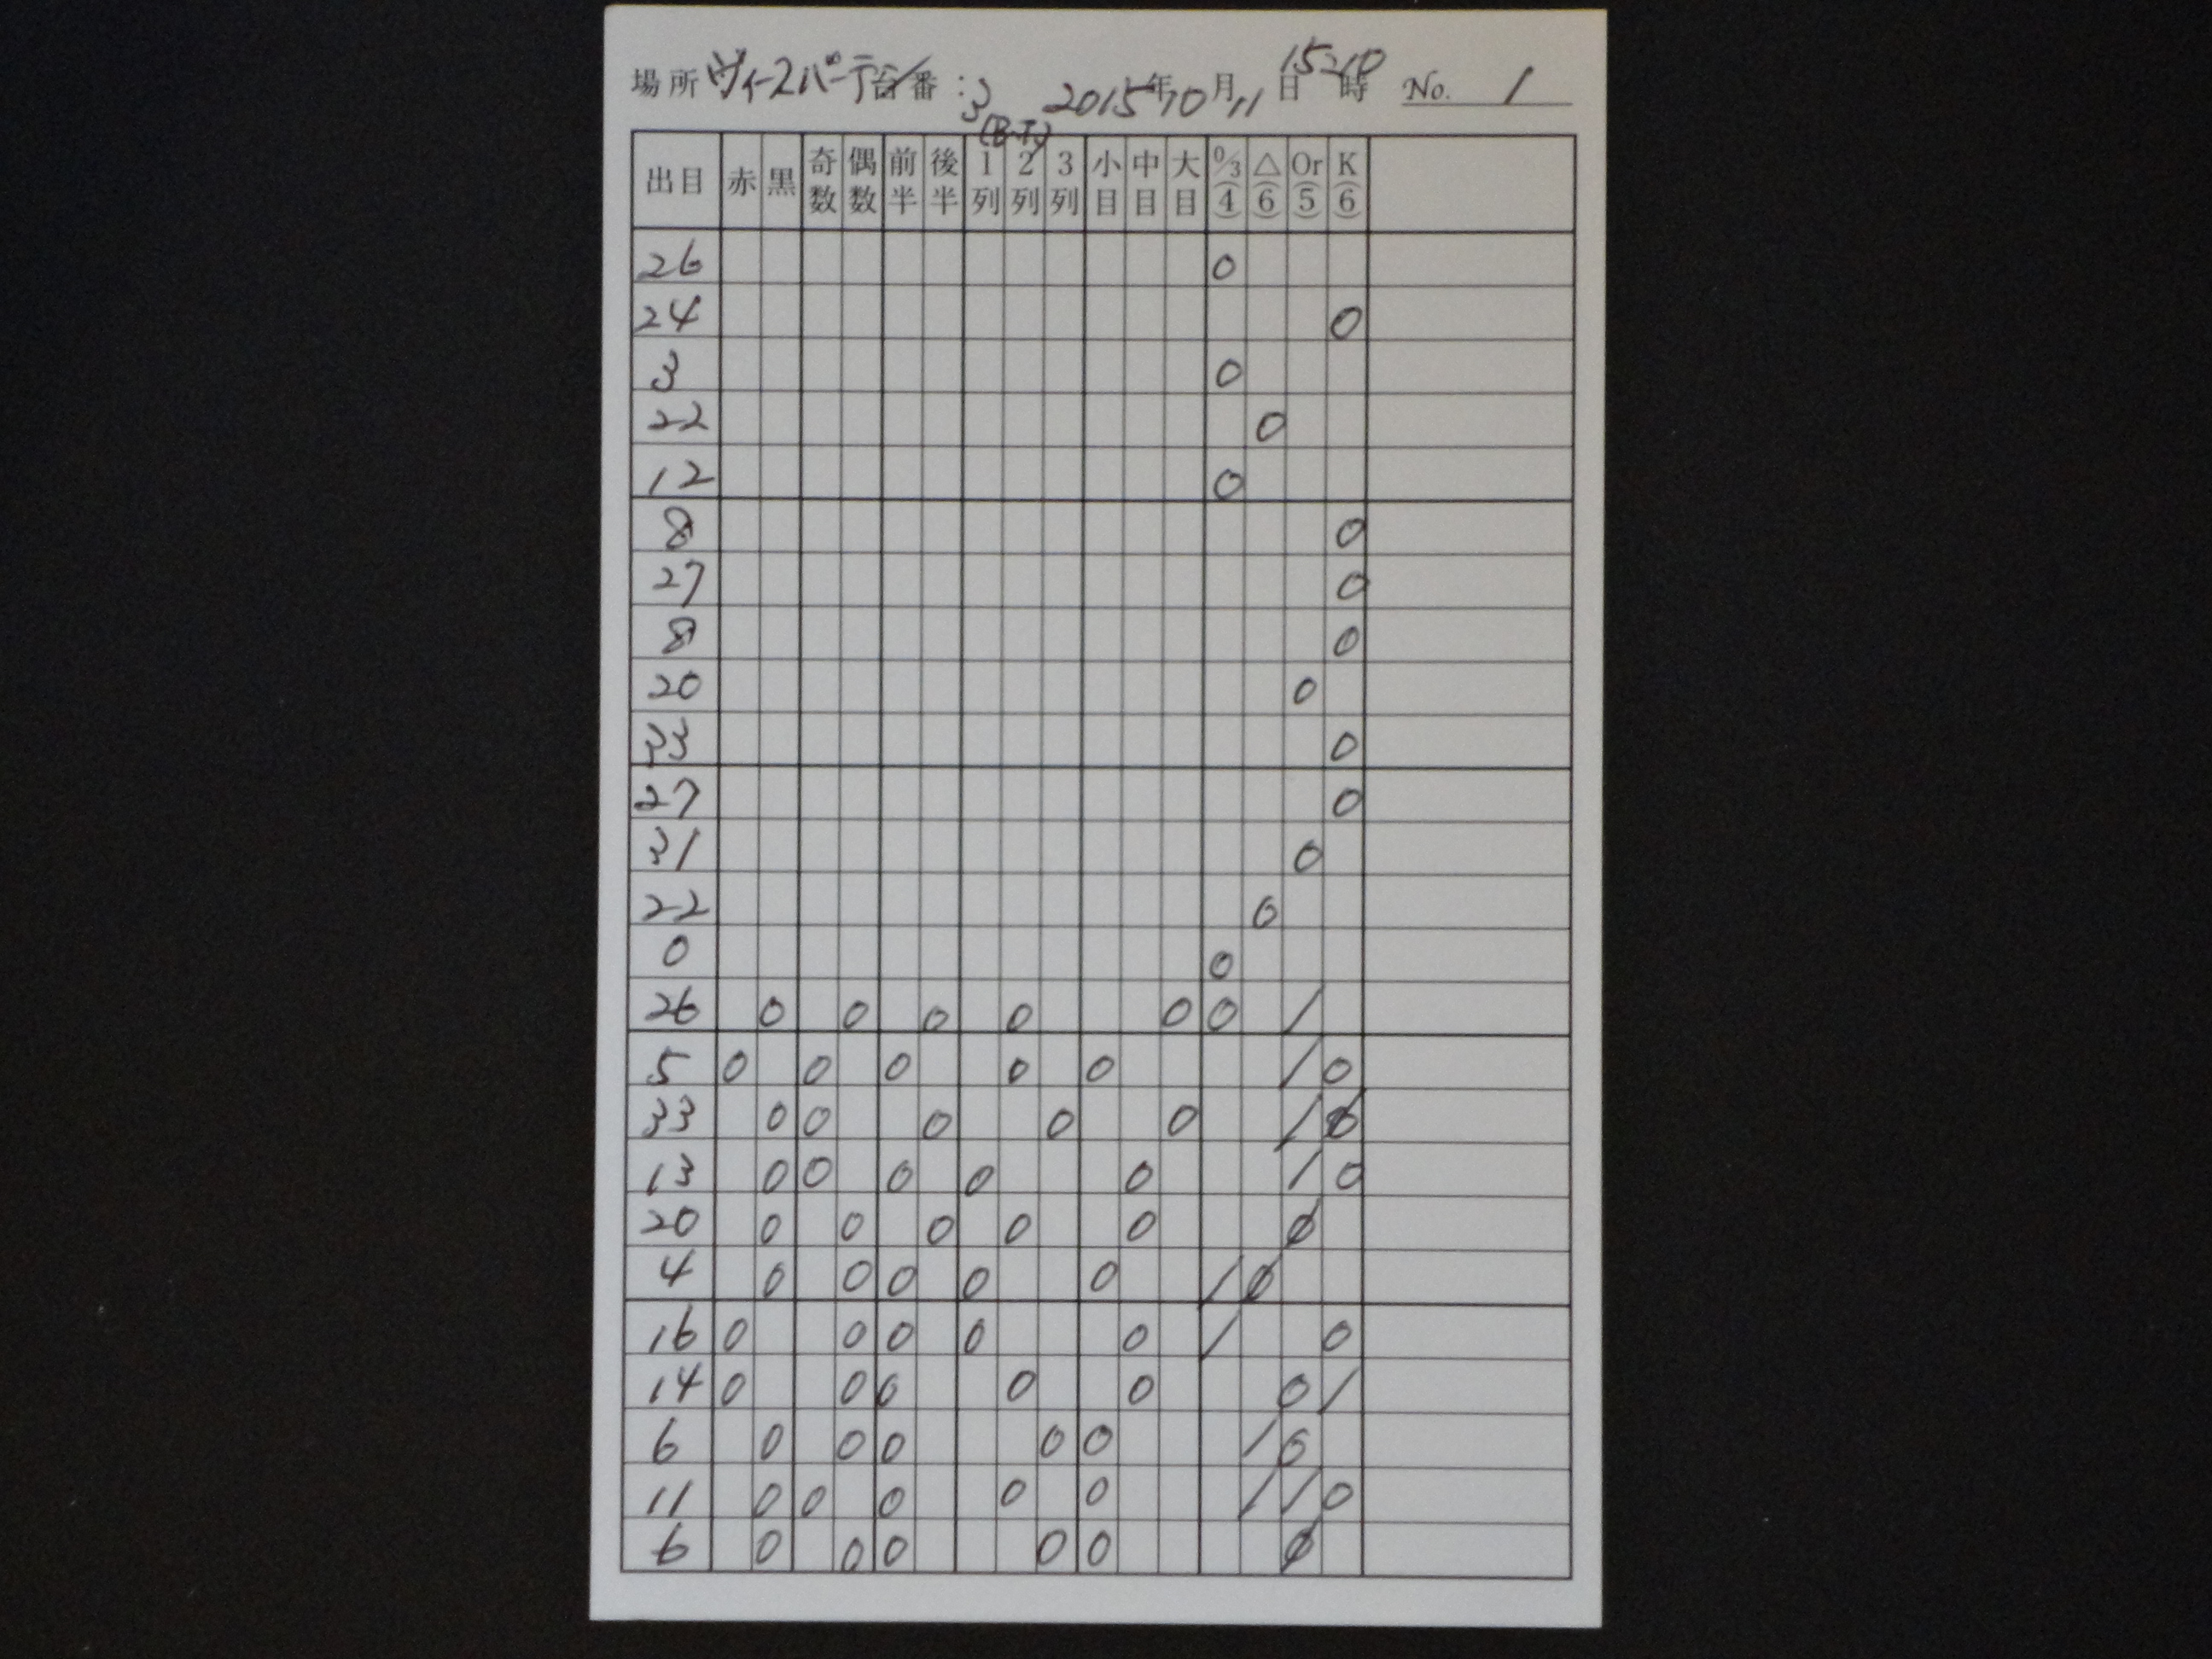 場所 ヴィースパーデン 台番:3 2015年10月11日15:10時 No. 1
(B.T)
出目 赤 黒 奇数 偶数 前半 後半 1列 2列 3列 小目 中目 大目 0/3(4) △(6) Or(5) K(6)
26 0
24 0
3 0
22 0
12 0
8 0
27 0
8 0
20 0
33 0
27 0
31 0
22 0
0 0
26 0 0 0 0 0 0 /
5 0 0 0 0 0 / 0
33 0 0 0 0 0 / 0
13 0 0 0 0 0 / 0
20 0 0 0 0 0 0
4 0 0 0 0 0 / 0
16 0 0 0 0 0 / 0
14 0 0 0 0 0 0 /
6 0 0 0 0 0 / 0
11 0 0 0 0 0 / / 0
6 0 0 0 0 0 0